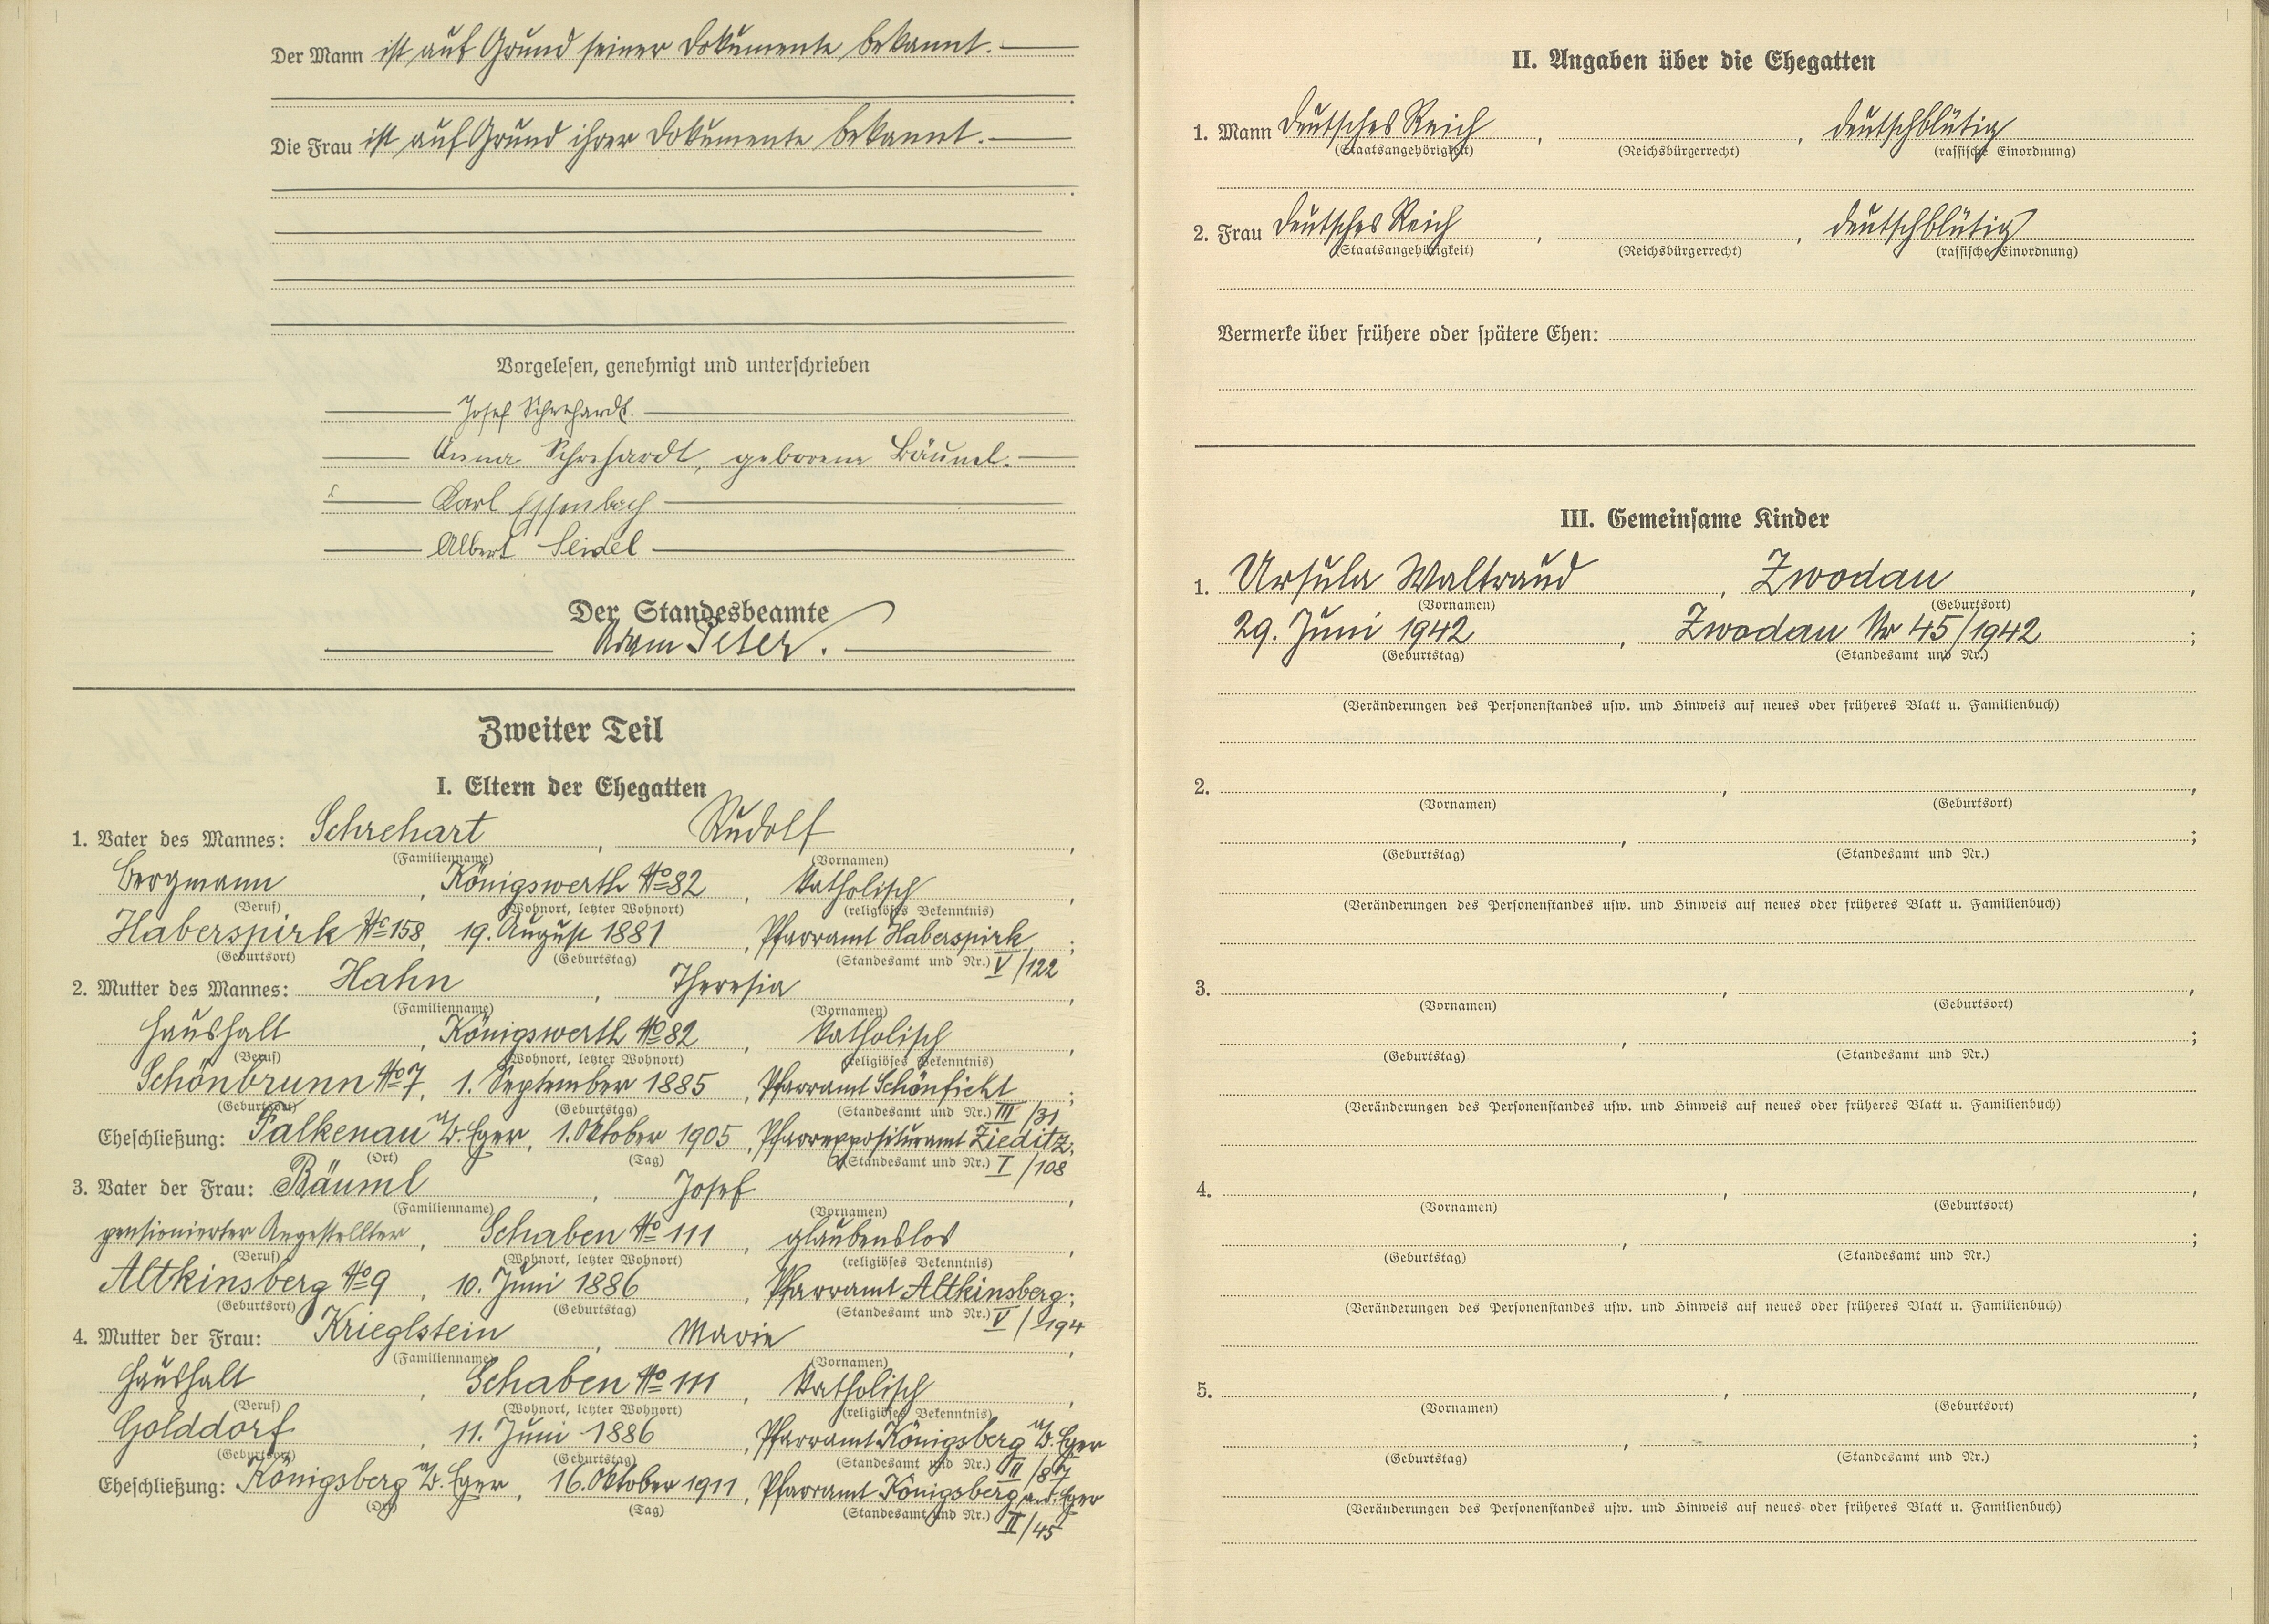 Der Mann ist auf Grund seiner Dokumente bekannt.
Die Frau ist auf Grund ihrer Dokumente bekannt.
Vorgelesen, genehmigt und unterschrieben
Josef Schrehardt.
Anna Schrehardt, geborene Bäuml.
Karl Essenbach
Albert Seidel
Der Standesbeamte
Adam Peter.
Zweiter Teil
I. Eltern der Ehegatten
1. Vater des Mannes: Schrehart, Rudolf,
(Familienname) (Vornamen)
Bergmann, Königswerth No 82, katholisch,
(Beruf) (Wohnort, letzter Wohnort) (religiöses Bekenntnis)
Haberspirk No 158, 19. August 1881, Pfarramt Haberspirk;
(Geburtsort) (Geburtstag) (Standesamt und Nr.) V/122
2. Mutter des Mannes: Hahn, Theresia,
(Familienname) (Vornamen)
Haushalt, Königswerth No 82, katholisch,
(Beruf) (Wohnort, letzter Wohnort) (religiöses Bekenntnis)
Schönbrunn No 7, 1. September 1885, Pfarramt Schönficht;
(Geburtsort) (Geburtstag) (Standesamt und Nr.) III/31
Eheschließung: Falkenau a/d. Eger, 1. Oktober 1905, Pfarrexposituramt Zieditz;
(Ort) (Tag) (Standesamt und Nr.) I/108
3. Vater der Frau: Bäuml, Josef,
(Familienname) (Vornamen)
pensionierter Angestellter, Schaben No 111, glaubenslos,
(Beruf) (Wohnort, letzter Wohnort) (religiöses Bekenntnis)
Altkinsberg No 9, 10. Juni 1886, Pfarramt Altkinsberg;
(Geburtsort) (Geburtstag) (Standesamt und Nr.) V/194
4. Mutter der Frau: Krieglstein, Marie,
(Familienname) (Vornamen)
Haushalt, Schaben No 111, katholisch,
(Beruf) (Wohnort, letzter Wohnort) (religiöses Bekenntnis)
Golddorf, 11. Juni 1886, Pfarramt Königsberg a/d. Eger
(Geburtsort) (Geburtstag) (Standesamt und Nr.) III/87
Eheschließung: Königsberg a/d. Eger, 16. Oktober 1911, Pfarramt Königsberg a.d. Eger
(Ort) (Tag) (Standesamt und Nr.) II/45
II. Angaben über die Ehegatten
1. Mann Deutsches Reich, , deutschblütig
(Staatsangehörigkeit) (Reichsbürgerrecht) (rassische Einordnung)
2. Frau Deutsches Reich, , deutschblütig
(Staatsangehörigkeit) (Reichsbürgerrecht) (rassische Einordnung)
Vermerke über frühere oder spätere Ehen:
III. Gemeinsame Kinder
1. Ursula Waltraud, Zwodau,
(Vornamen) (Geburtsort)
29. Juni 1942, Zwodau Nr 45/1942;
(Geburtstag) (Standesamt und Nr.)
(Veränderungen des Personenstandes usw. und Hinweis auf neues oder früheres Blatt u. Familienbuch)
2. , ,
(Vornamen) (Geburtsort)
, ;
(Geburtstag) (Standesamt und Nr.)
(Veränderungen des Personenstandes usw. und Hinweis auf neues oder früheres Blatt u. Familienbuch)
3. , ,
(Vornamen) (Geburtsort)
, ;
(Geburtstag) (Standesamt und Nr.)
(Veränderungen des Personenstandes usw. und Hinweis auf neues oder früheres Blatt u. Familienbuch)
4. , ,
(Vornamen) (Geburtsort)
, ;
(Geburtstag) (Standesamt und Nr.)
(Veränderungen des Personenstandes usw. und Hinweis auf neues oder früheres Blatt u. Familienbuch)
5. , ,
(Vornamen) (Geburtsort)
, ;
(Geburtstag) (Standesamt und Nr.)
(Veränderungen des Personenstandes usw. und Hinweis auf neues oder früheres Blatt u. Familienbuch)